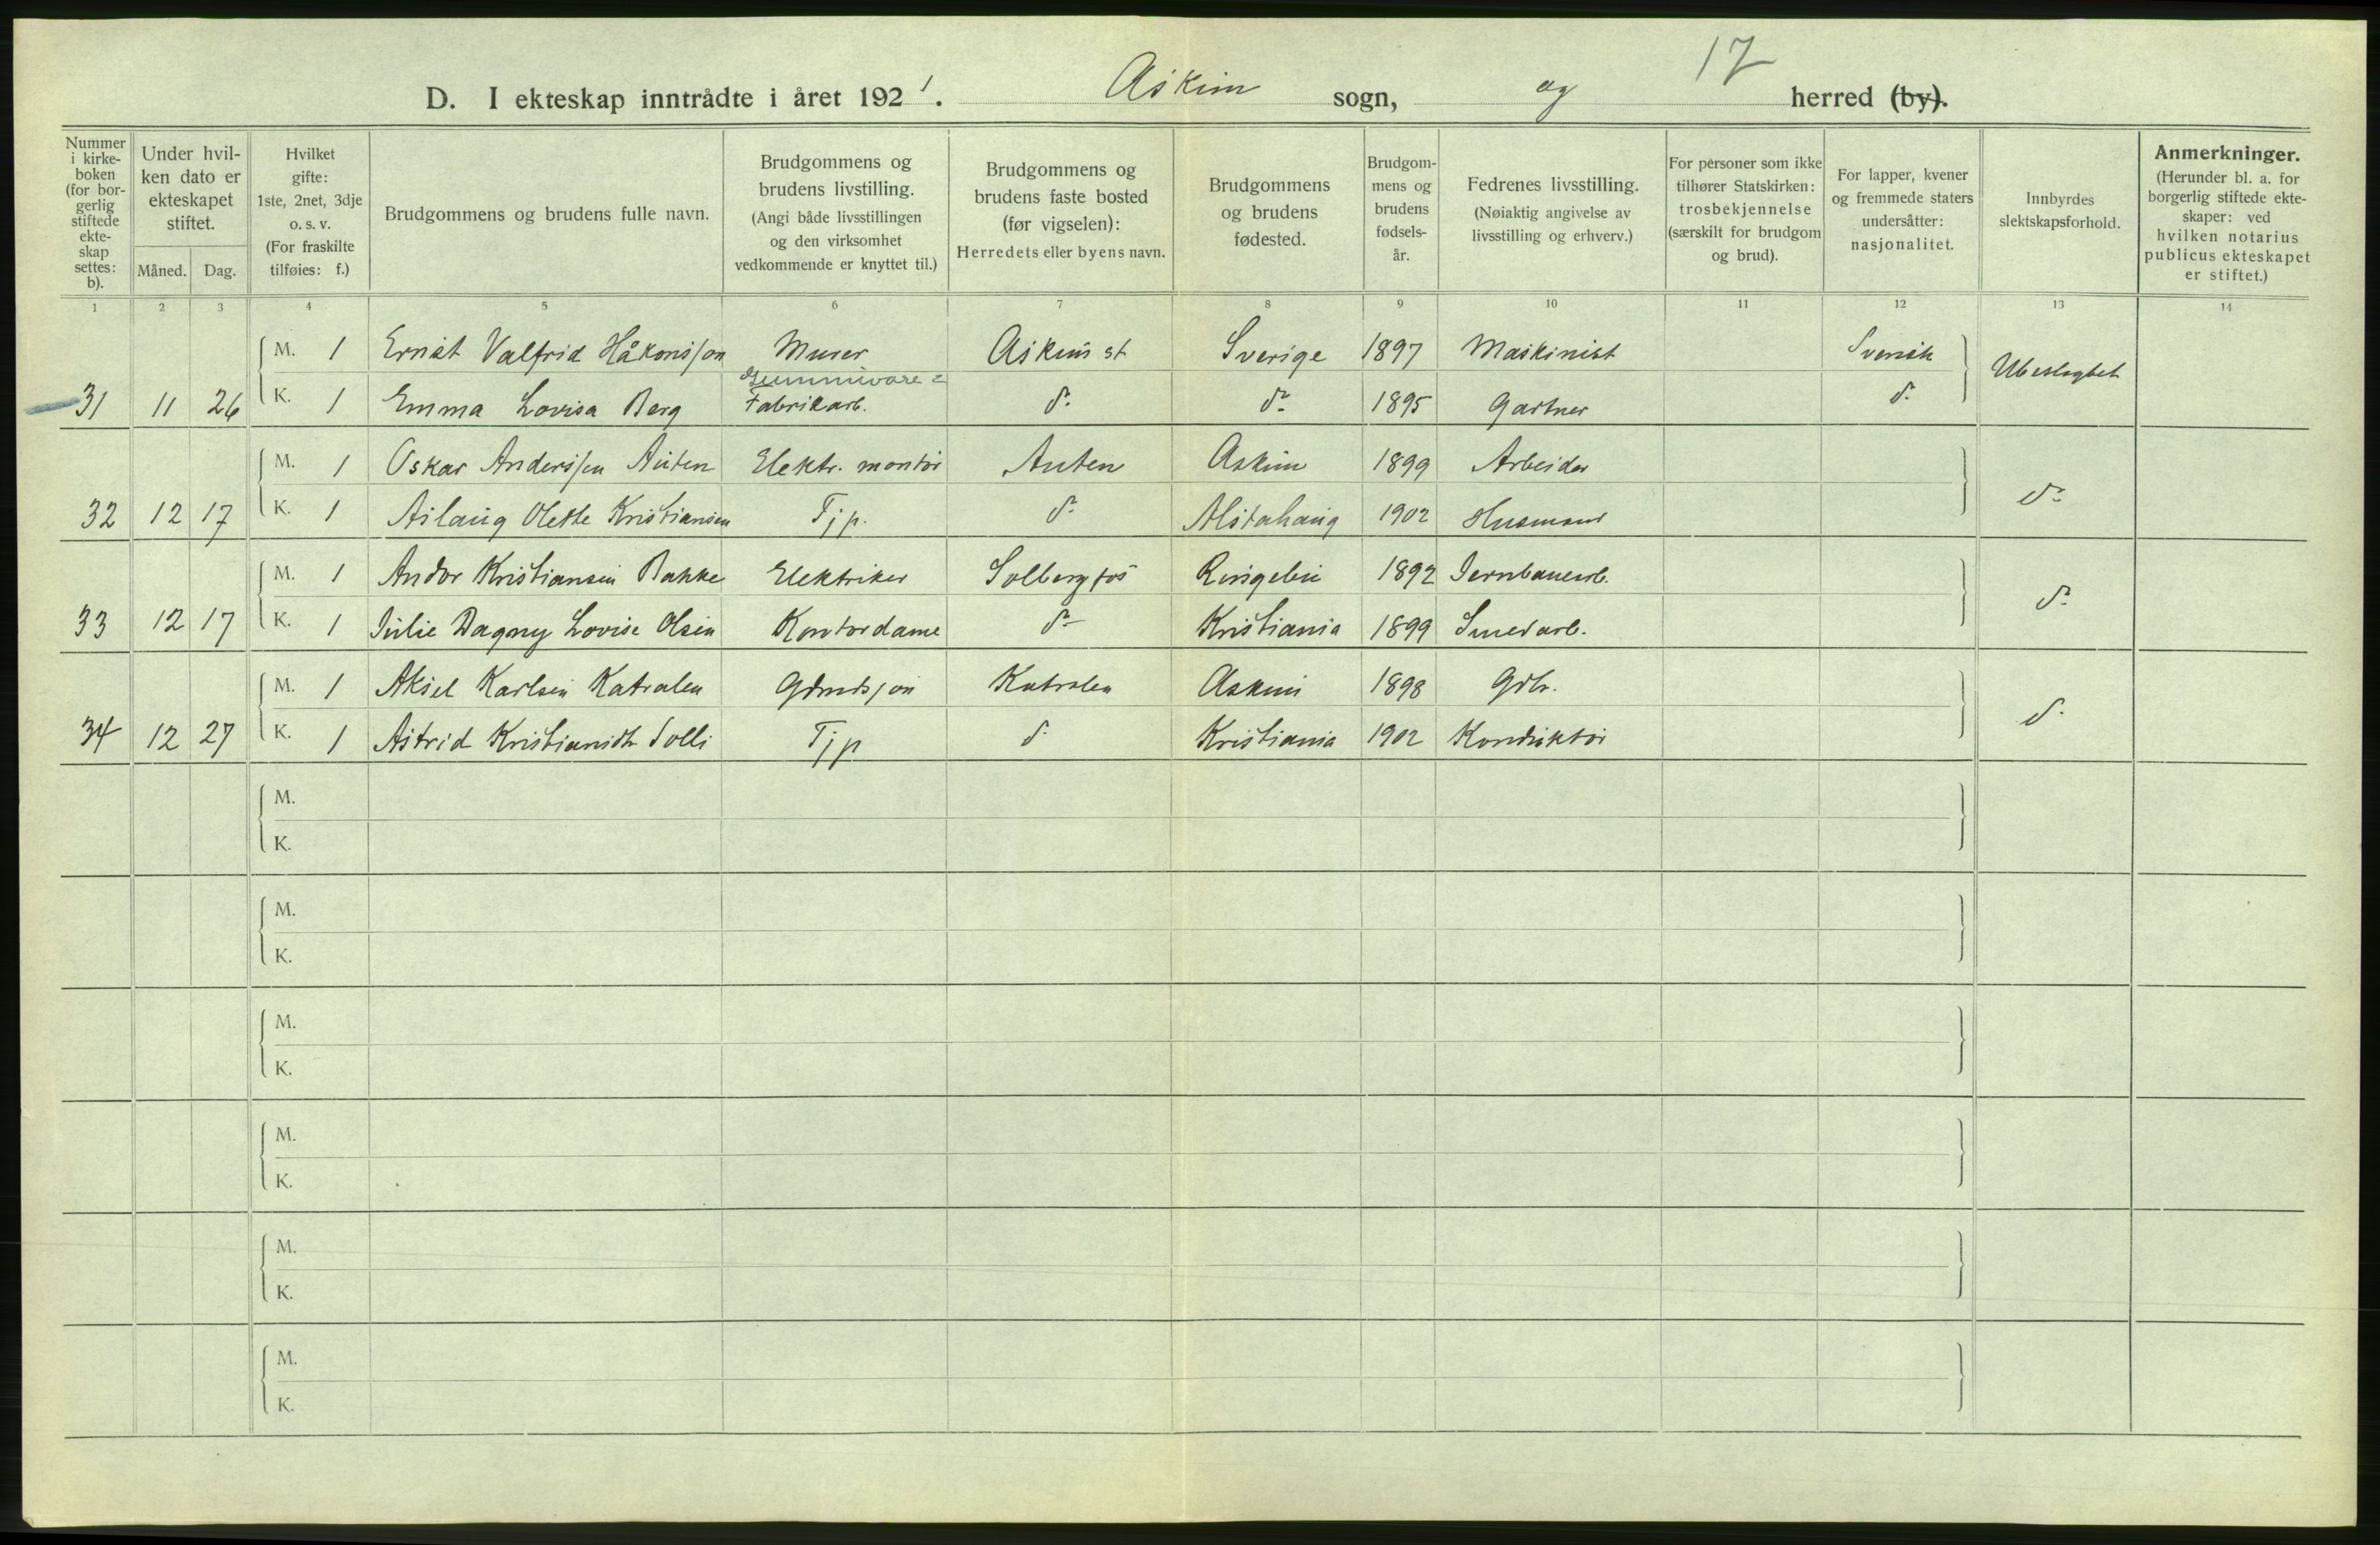 17
D. I ekteskap inntrådte i året 1921. Askim sogn, og herred (by).
Nummer i kirke-boken (for bor-gerlig stiftede ekte-skap settes: b).
Under hvil-ken dato er ekteskapet stiftet.
Måned. Dag.
Hvilket gifte: 1ste, 2net, 3dje o. s. v. (For fraskilte tilføies: f.)
Brudgommens og brudens fulle navn.
Brudgommens og brudens livstilling. (Angi både livsstillingen og den virksomhet vedkommende er knyttet til.)
Brudgommens og brudens faste bosted (før vigselen): Herredets eller byens navn.
Brudgommens og brudens fødested.
Brudgom-mens og brudens fødsels-år.
Fedrenes livsstilling. (Nøiaktig angivelse av livsstilling og erhverv.)
For personer som ikke tilhører Statskirken: trosbekjennelse (særskilt for brudgom og brud).
For lapper, kvener og fremmede staters undersåtter: nasjonalitet.
Innbyrdes slektskapsforhold.
Anmerkninger. (Herunder bl. a. for borgerlig stiftede ekte-skaper: ved hvilken notarius publicus ekteskapet er stiftet.)
1 2 3 4 5 6 7 8 9 10 11 12 13 14
M. 1 Ernst Valfrid Håkonsson Murer Askim st Sverige 1897 Maskinist Svensk Ubeslegtet
Gummivare=
31 11 26 K. 1 Emma Lovisa Berg Fabrikarb. do do 1895 Gartner do
M. 1 Oskar Anderssen Auten Elektr. montør Auten Askim 1899 Arbeider do
32 12 17 K. 1 Aslaug Olette Kristiansen Tjp. do Alstahaug 1902 Husmand
M. 1 Andor Kristiansen Bakke Elektriker Solbergfos Ringebu 1892 Jernbanearb. do
33 12 17 K. 1 Julie Dagny Lovise Olsen Kontordame do Kristiania 1899 Smedarb.
M. 1 Aksel Karlsen Katralen Gdmdsøn Katralen Askim 1898 Gdbr. do
34 12 27 K. 1 Astrid Kristiansdtr Solli Tjp do Kristiania 1902 Konduktør
M.
K.
M.
K.
M.
K.
M.
K.
M.
K.
M.
K.